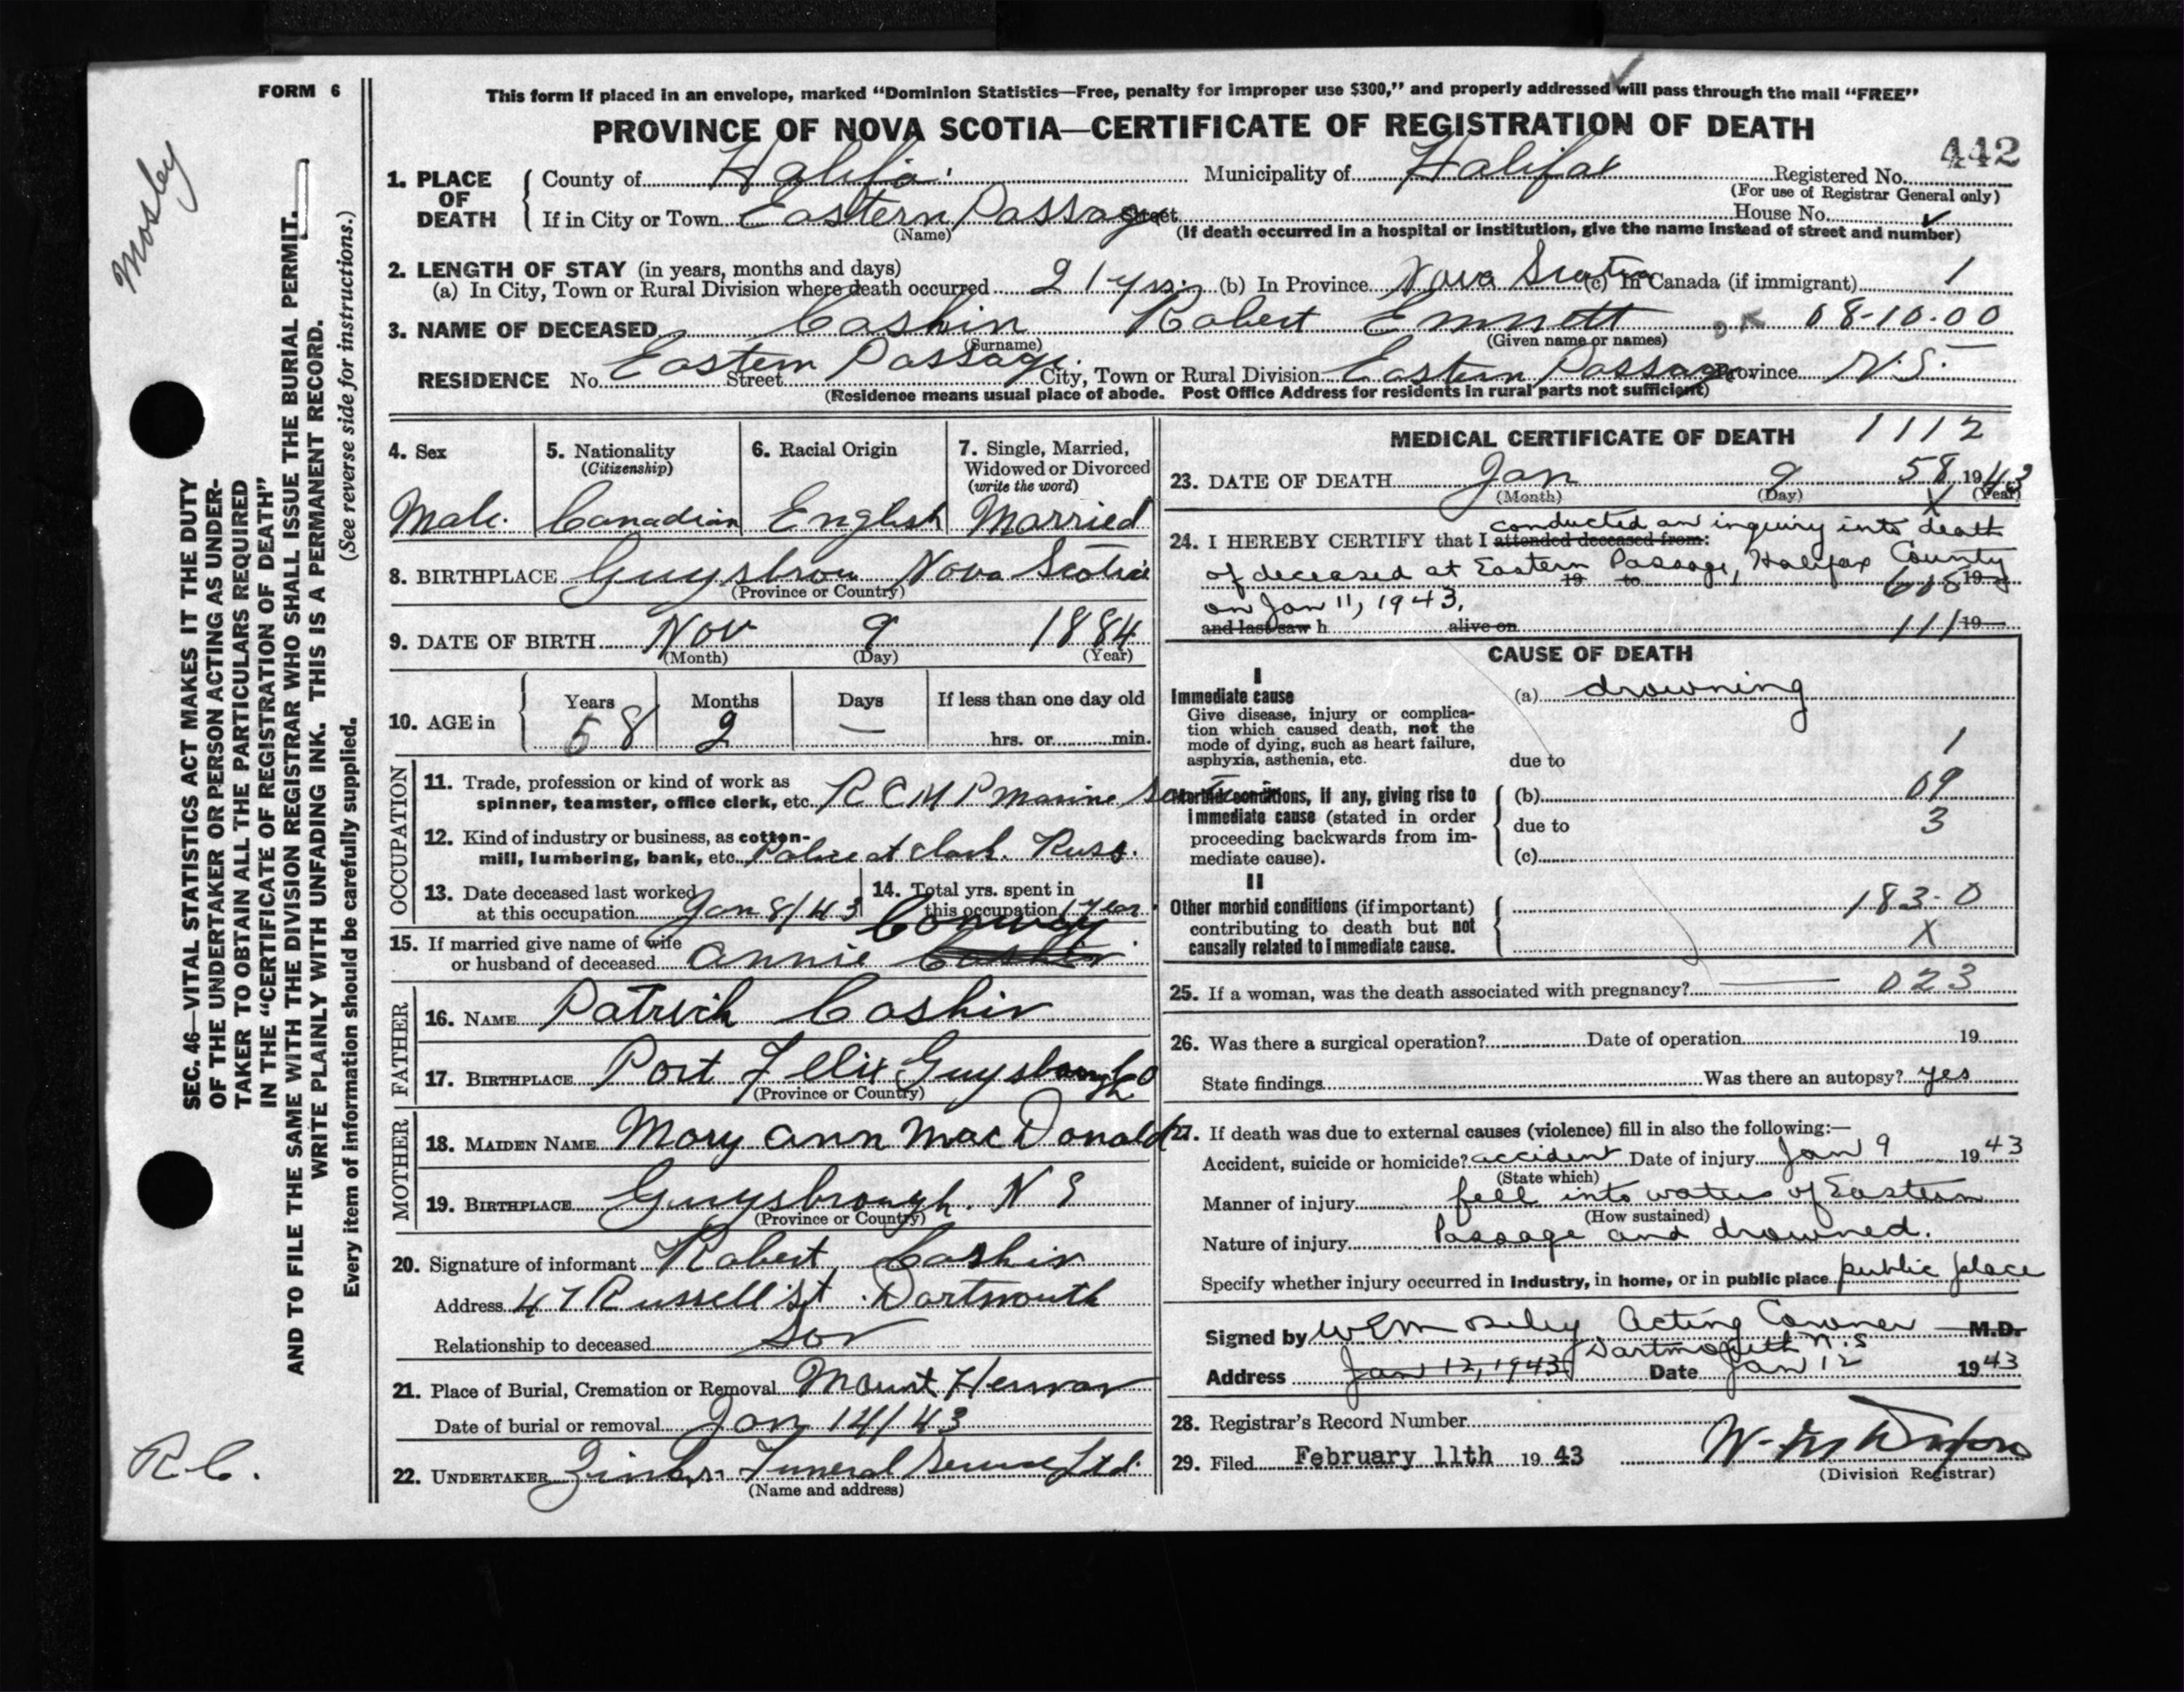 FORM 6
Mosley
SEC. 46—VITAL STATISTICS ACT MAKES IT THE DUTY
OF THE UNDERTAKER OR PERSON ACTING AS UNDER-
TAKER TO OBTAIN ALL THE PARTICULARS REQUIRED
IN THE "CERTIFICATE OF REGISTRATION OF DEATH"
AND TO FILE THE SAME WITH THE DIVISION REGISTRAR WHO SHALL ISSUE THE BURIAL PERMIT.
WRITE PLAINLY WITH UNFADING INK. THIS IS A PERMANENT RECORD.
Every item of information should be carefully supplied. (See reverse side for instructions.)
R.C.
This form if placed in an envelope, marked "Dominion Statistics—Free, penalty for improper use $300," and properly addressed will pass through the mail "FREE"
PROVINCE OF NOVA SCOTIA—CERTIFICATE OF REGISTRATION OF DEATH
442
1. PLACE OF DEATH County of Halifa. Municipality of Halifax Registered No.
(For use of Registrar General only)
If in City or Town Eastern Passage Street House No.
(Name) (If death occurred in a hospital or institution, give the name instead of street and number)
2. LENGTH OF STAY (in years, months and days)
(a) In City, Town or Rural Division where death occurred 21 yrs. (b) In Province Nova Scotia (c) In Canada (if immigrant) 1
3. NAME OF DECEASED Cashin Robert Emmett OK 08-10-00
(Surname) (Given name or names)
RESIDENCE No. Eastern Passage. Street City, Town or Rural Division Eastern Passage Province N.S.
(Residence means usual place of abode. Post Office Address for residents in rural parts not sufficient)
4. Sex 5. Nationality (Citizenship) 6. Racial Origin 7. Single, Married, Widowed or Divorced (write the word)
Male. Canadian English Married
8. BIRTHPLACE Guysbrou Nova Scotia
(Province or Country)
9. DATE OF BIRTH Nov 9 1884
(Month) (Day) (Year)
10. AGE in Years Months Days If less than one day old
58 2 — hrs. or min.
OCCUPATION
11. Trade, profession or kind of work as
spinner, teamster, office clerk, etc. R C M P Marine Section
12. Kind of industry or business, as cotton-
mill, lumbering, bank, etc. Police at Clark. Russ.
13. Date deceased last worked at this occupation Jan 8/43 14. Total yrs. spent in this occupation 1 year.
15. If married give name of wife
or husband of deceased Annie Cashin Conway
FATHER
16. NAME Patrick Cashin
17. BIRTHPLACE Port Felix Guysboro Co
(Province or Country)
MOTHER
18. MAIDEN NAME Mary Ann MacDonald
19. BIRTHPLACE Guysbrough. N S
(Province or Country)
20. Signature of informant Robert Cashin
Address 47 Russell St Dartmouth
Relationship to deceased Son
21. Place of Burial, Cremation or Removal Mount Herman
Date of burial or removal Jan 14/43
22. UNDERTAKER Zinks Funeral Service Ltd.
(Name and address)
MEDICAL CERTIFICATE OF DEATH 1112
23. DATE OF DEATH Jan 9 58 1943
(Month) (Day) X (Year)
conducted an inquiry into death
24. I HEREBY CERTIFY that I attended deceased from:
of deceased at Eastern Passage, Halifax County
19 to 608 19
on Jan 11, 1943.
and last saw h alive on 111 19
CAUSE OF DEATH
I
Immediate cause (a) drowning
Give disease, injury or complica-
tion which caused death, not the
mode of dying, such as heart failure, 1
asphyxia, asthenia, etc. due to
Morbid conditions, if any, giving rise to (b) 09
immediate cause (stated in order due to 3
proceeding backwards from im-
mediate cause). (c)
II
Other morbid conditions (if important) 183-0
contributing to death but not X
causally related to immediate cause.
25. If a woman, was the death associated with pregnancy? — 023
26. Was there a surgical operation? Date of operation 19
State findings Was there an autopsy? yes
27. If death was due to external causes (violence) fill in also the following:—
Accident, suicide or homicide? accident Date of injury Jan 9 1943
(State which)
Manner of injury fell into waters of Eastern
(How sustained)
Nature of injury Passage and drowned.
Specify whether injury occurred in industry, in home, or in public place public place
Signed by W E Moseley Acting Coroner M.D.
Dartmouth N.S
Address Jan 12, 1943 Date Jan 12 1943
28. Registrar's Record Number
29. Filed February 11th 19 43
(Division Registrar)